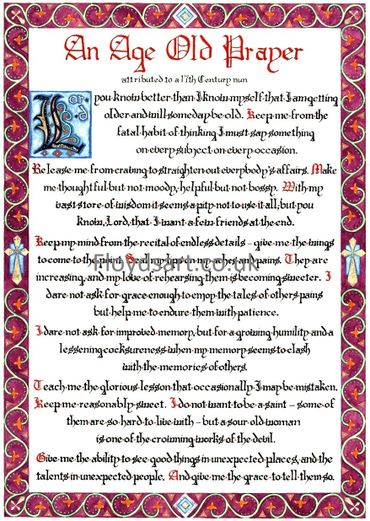 An Age Old Prayer
attributed to a 17th Century nun
Lord
you know better than I know myself that I am getting
older and will someday be old. Keep me from the
fatal habit of thinking I must say something
on every subject on every occasion.
Release me from craving to straighten out everybody's affairs. Make
me thoughtful but not moody, helpful but not bossy. With my
vast store of wisdom it seems a pity not to use it all, but you
know, Lord, that I want a few friends at the end.
Keep my mind from the recital of endless details - give me the wings
to come to the point. Seal my lips on my aches and pains. They are
increasing, and my love of rehearsing them is becoming sweeter. I
dare not ask for grace enough to enjoy the tales of others pains
but help me to endure them with patience.
I dare not ask for improved memory, but for a growing humility and a
lessening cocksureness when my memory seems to clash
with the memories of others.
Teach me the glorious lesson that occasionally I may be mistaken.
Keep me reasonably sweet. I do not want to be a saint - some of
them are so hard to live with - but a sour old woman
is one of the crowning works of the devil.
Give me the ability to see good things in unexpected places, and the
talents in unexpected people. And give me the grace to tell them so.